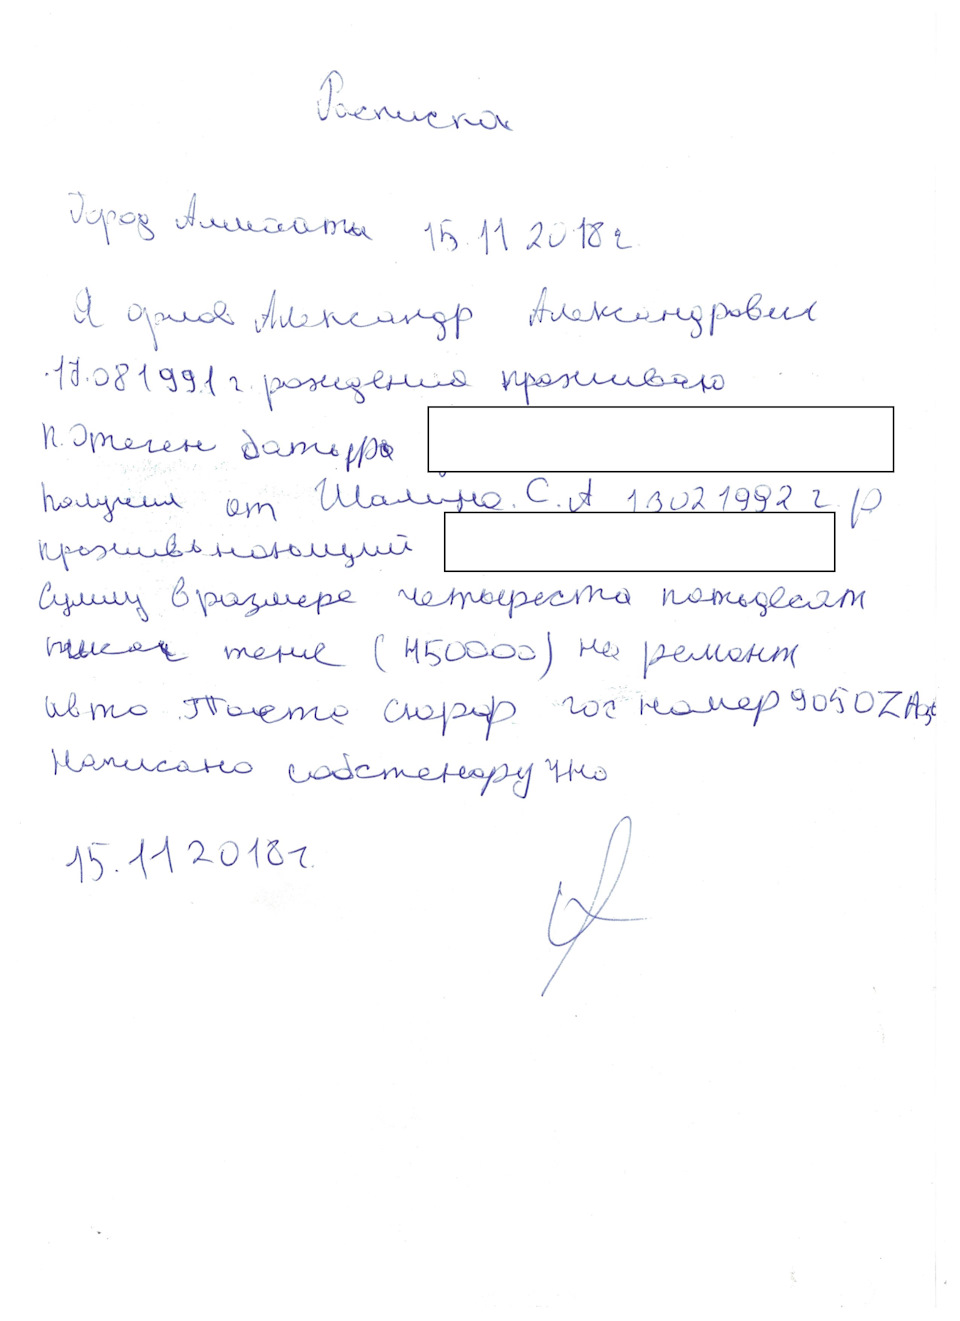 Расписка
Город Алматы 15.11 2018г.
Я Орлов Александр Александрович
17.081991 г. рождения проживаю
п. Отеген батыра
получил от Шалина. С. А 13021992 г. р
проживающий
Сумму в размере четыреста пятьдесят
тысяч тенге (450000) на ремонт
авто Тойота сюрф гос номер 9050Z
Написано собстенаручно
15.11 2018г.